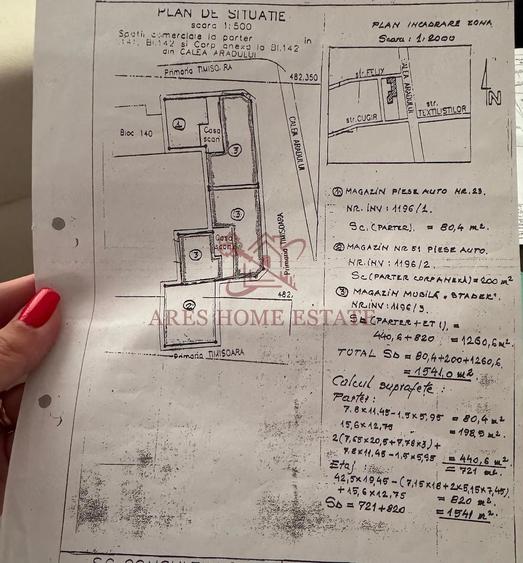 PLAN DE SITUATIE
scara 1:500
Spatii comerciale la parter in
141, Bl.142 si Corp anexa la Bl.142
din CALEA ARADULUI
Primaria TIMISOARA
482,350
Bloc 140
1
Casa scari
3
CALEA ARADULUI
3
Primaria TIMISOARA
Casa scari
3
2
482,
Primaria TIMISOARA
PLAN INCADRARE ZONA
Scara : 1:2000
str. FELIX
CALEA ARADULUI
str. CUGIR
str. TEXTILISTILOR
N
1 MAGAZIN PIESE AUTO NR. 23.
NR. INV : 1196/1.
Sc. (PARTER). = 80,4 m².
2 MAGAZIN NR 51 PIESE AUTO.
NR. INV : 1196/2.
Sc (PARTER CORP ANEXĂ) = 200 m²
3 MAGAZIN MOBILĂ „STADER".
NR. INV : 1196/3.
Sd (PARTER + ET I), =
440,6 + 820 = 1260,6 m².
TOTAL SD = 80,4+200+1260,6.
= 1541,0 m²
ARES HOME ESTATE
Calcul suprafețe :
Parter :
7.8 x 11,45 - 1,5 x 5,95 = 80,4 m²
15,6 x 12,75 = 198,9 m².
2(7,65 x 20,5 + 7,78 x 3) +
7.8 x 11,45 - 1,5 x 5,95 = 440,6 m²
= 721 m².
Etaj
42,5 x 19,45 - (7,15 x 18 + 2 x 5,15 x 7,45)
+ 15,6 x 12,75 = 820 m²
SD = 721 + 820 = 1541 m².